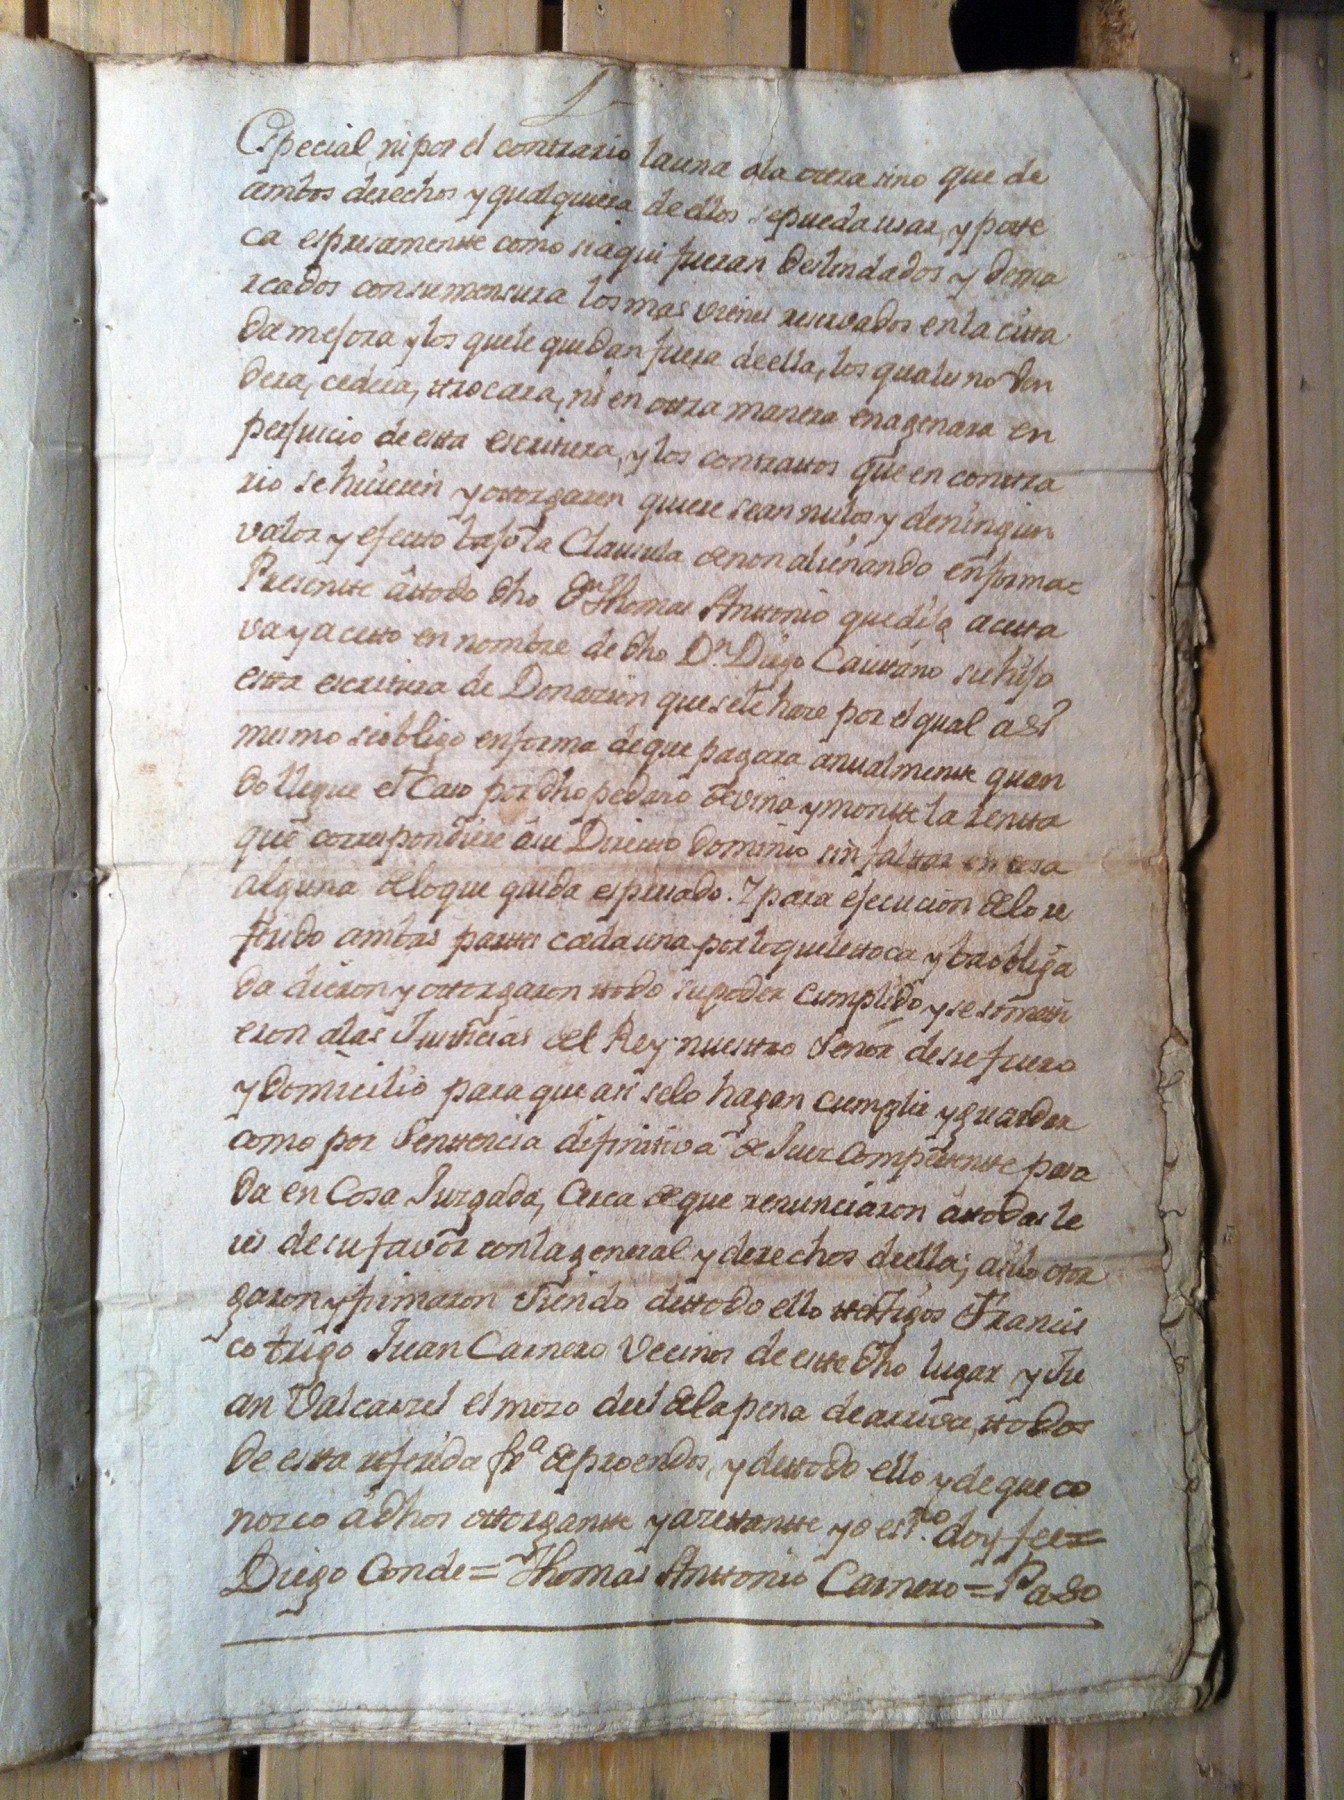 Especial, ni por el contrario la una a la ottra sino que de
ambos derechos y qualquiera de ellos se pueda usar, y potte
ca espresamentte como si aqui fueran deslindados y dema
rcados con su mensura los mas vienes reservados en la citta
da mejora y los que le quedan fuera de ella, los quales no ven
dera, cedera, ttrocara, ni en ottra manera enagenara en
perjuicio de estta escritura, y los conttrattos que en conttra
rio se hicieren y ottorgaren quiere sean nulos y de ningun
valor y efectto bajo la Clausula de non alienando en forma =
Presentte â ttodo dho Dn Thomas Anttonio que dijo acetta
va y acetto en nombre de dho Dn. Diego Caiettano su hijo
estta escritura de Donazion que se le haze por el qual asi
mesmo se obligo en forma de que pagara anualmentte quan
do llegue el Caso por dho pedazo de viña y montte la rentta
que correspondiere â su Direcctto dominio sin falttar en cosa
alguna de lo que queda espresado. Y para ejecucion de lo re
ferido ambas parttes cada una por lo que le ttoca y ba obliga
da dieron y ottorgaron ttodo su poder cumplido y se sometti
eron a las Justicias del Rey nuesttro Señor de su fuero
y domicilio para que asi se lo hagan cumplir y guardar
como por Senttencia difinitiva de Juez Competentte pasa
da en Cosa Juzgada, Cerca de que renunciaron â ttodas le
ies de su favor con la general y derechos de ella; asi lo otor
garon y firmaron siendo de ttodo ello testigos Francis
co trigo Juan Carnero Vecinos de estte dho lugar y Ju
an Valcarzel el mozo del de la pena de arriva, ttodos
de estta referida fra de proendos, y de ttodo ello y de que co
nozco â dhos ottorgantte y azettantte yo essno. doy fee =
Diego Conde = Thomas Anttonio Carnero = Paso